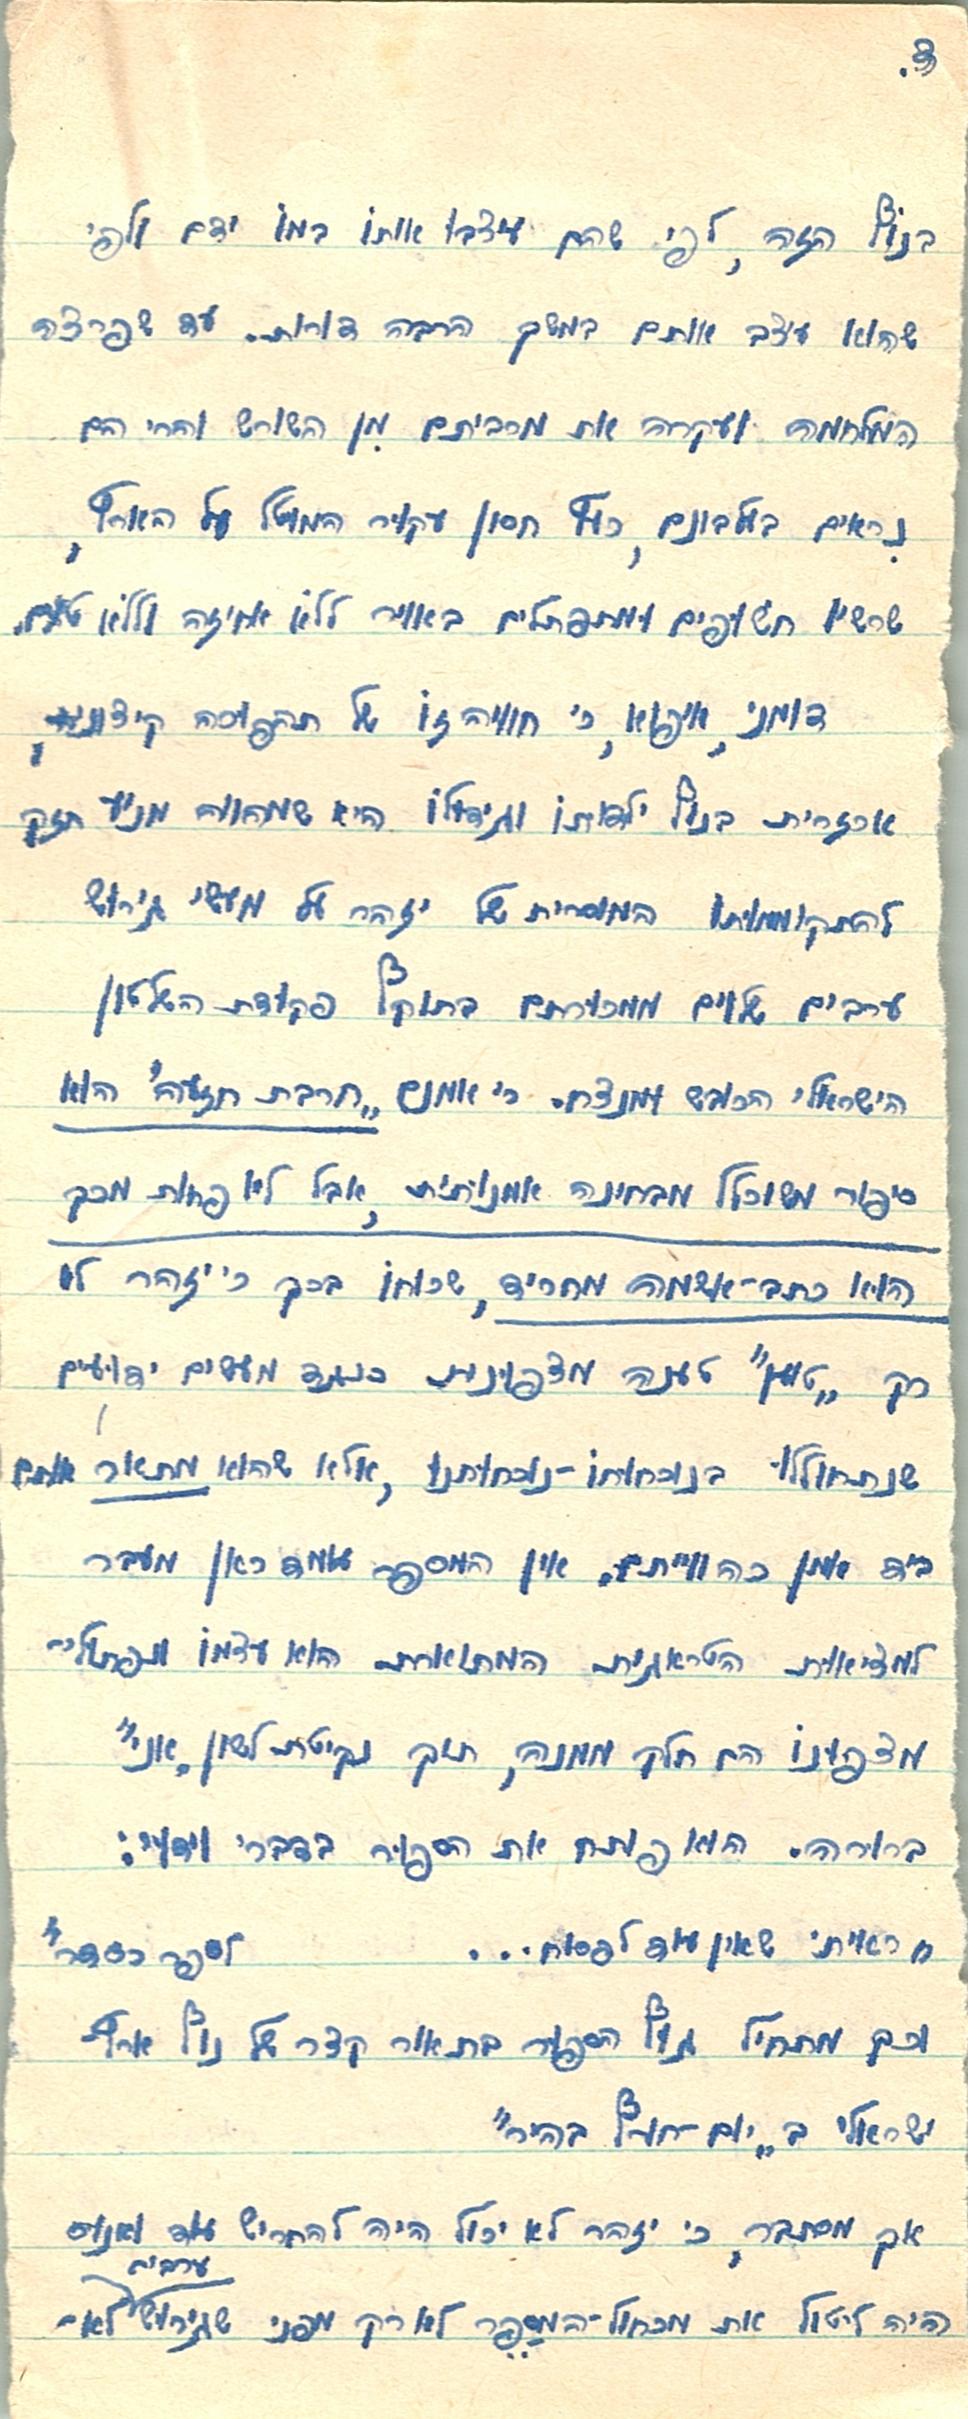 ד.
בנוף הזה, לפי שהם עיצבו אותו במו ידם ולפי
שהוא עצב אותם במשך הרבה דורות. עד שפרצה
המלחמה ועקרה את מרביתם מן השורש והרי הם
נראים בעלבונם, כעץ חסון עקור המוטל על הארץ,
שרשיו חשופים ומתפתלים באוויר ללא אחיזה וללא טעם.
דומני, איפוא, כי חוויה זו של תהפוכה קיצונית,
אכזרית בנוף ילדותו וגידולו היא שמהווה מניע חזק
להתקוממותו המוסרית של יזהר על מעשי גירוש
ערבים שלוים ממכורתם בתוקף פקודת השלטון
הישראלי הכובש ומנצח. כי אומנם „חרבת חזעה" הוא
סיפור משוכלל מבחינה אמנותית, אבל לא פחות מכך
הוא כתב-אשמה מחריד, שכוחו בכך כי יזהר לא
רק „טוען" טענה מצפונית כנגד מעשים ידועים
שנתחוללו בנוכחותו-נוכחותנו, אלא שהוא מתאר אותם
ביד אמן כהוויתם. אין המספר עומד כאן מעבר
למציאות הטראגית המתוארת. הוא עצמו ונפתולי-
מצפונו הם חלק ממנה, תוך נקיטת לשון „אני"
ברורה. הוא פותח את הספור בדברי וידוי:
„ראיתי שאין עוד לפסוח... לספר כסדר"
וכך מתחיל גוף הספור בתאור קצר של נוף ארץ
ישראלי ב„יום-חורף בהיר"
אך מסתבר, כי יזהר לא יכול היה להחריש עוד ואנוס
היה ליטול את מכחול-המספר לא רק מפני שגירוש ערבים לא-